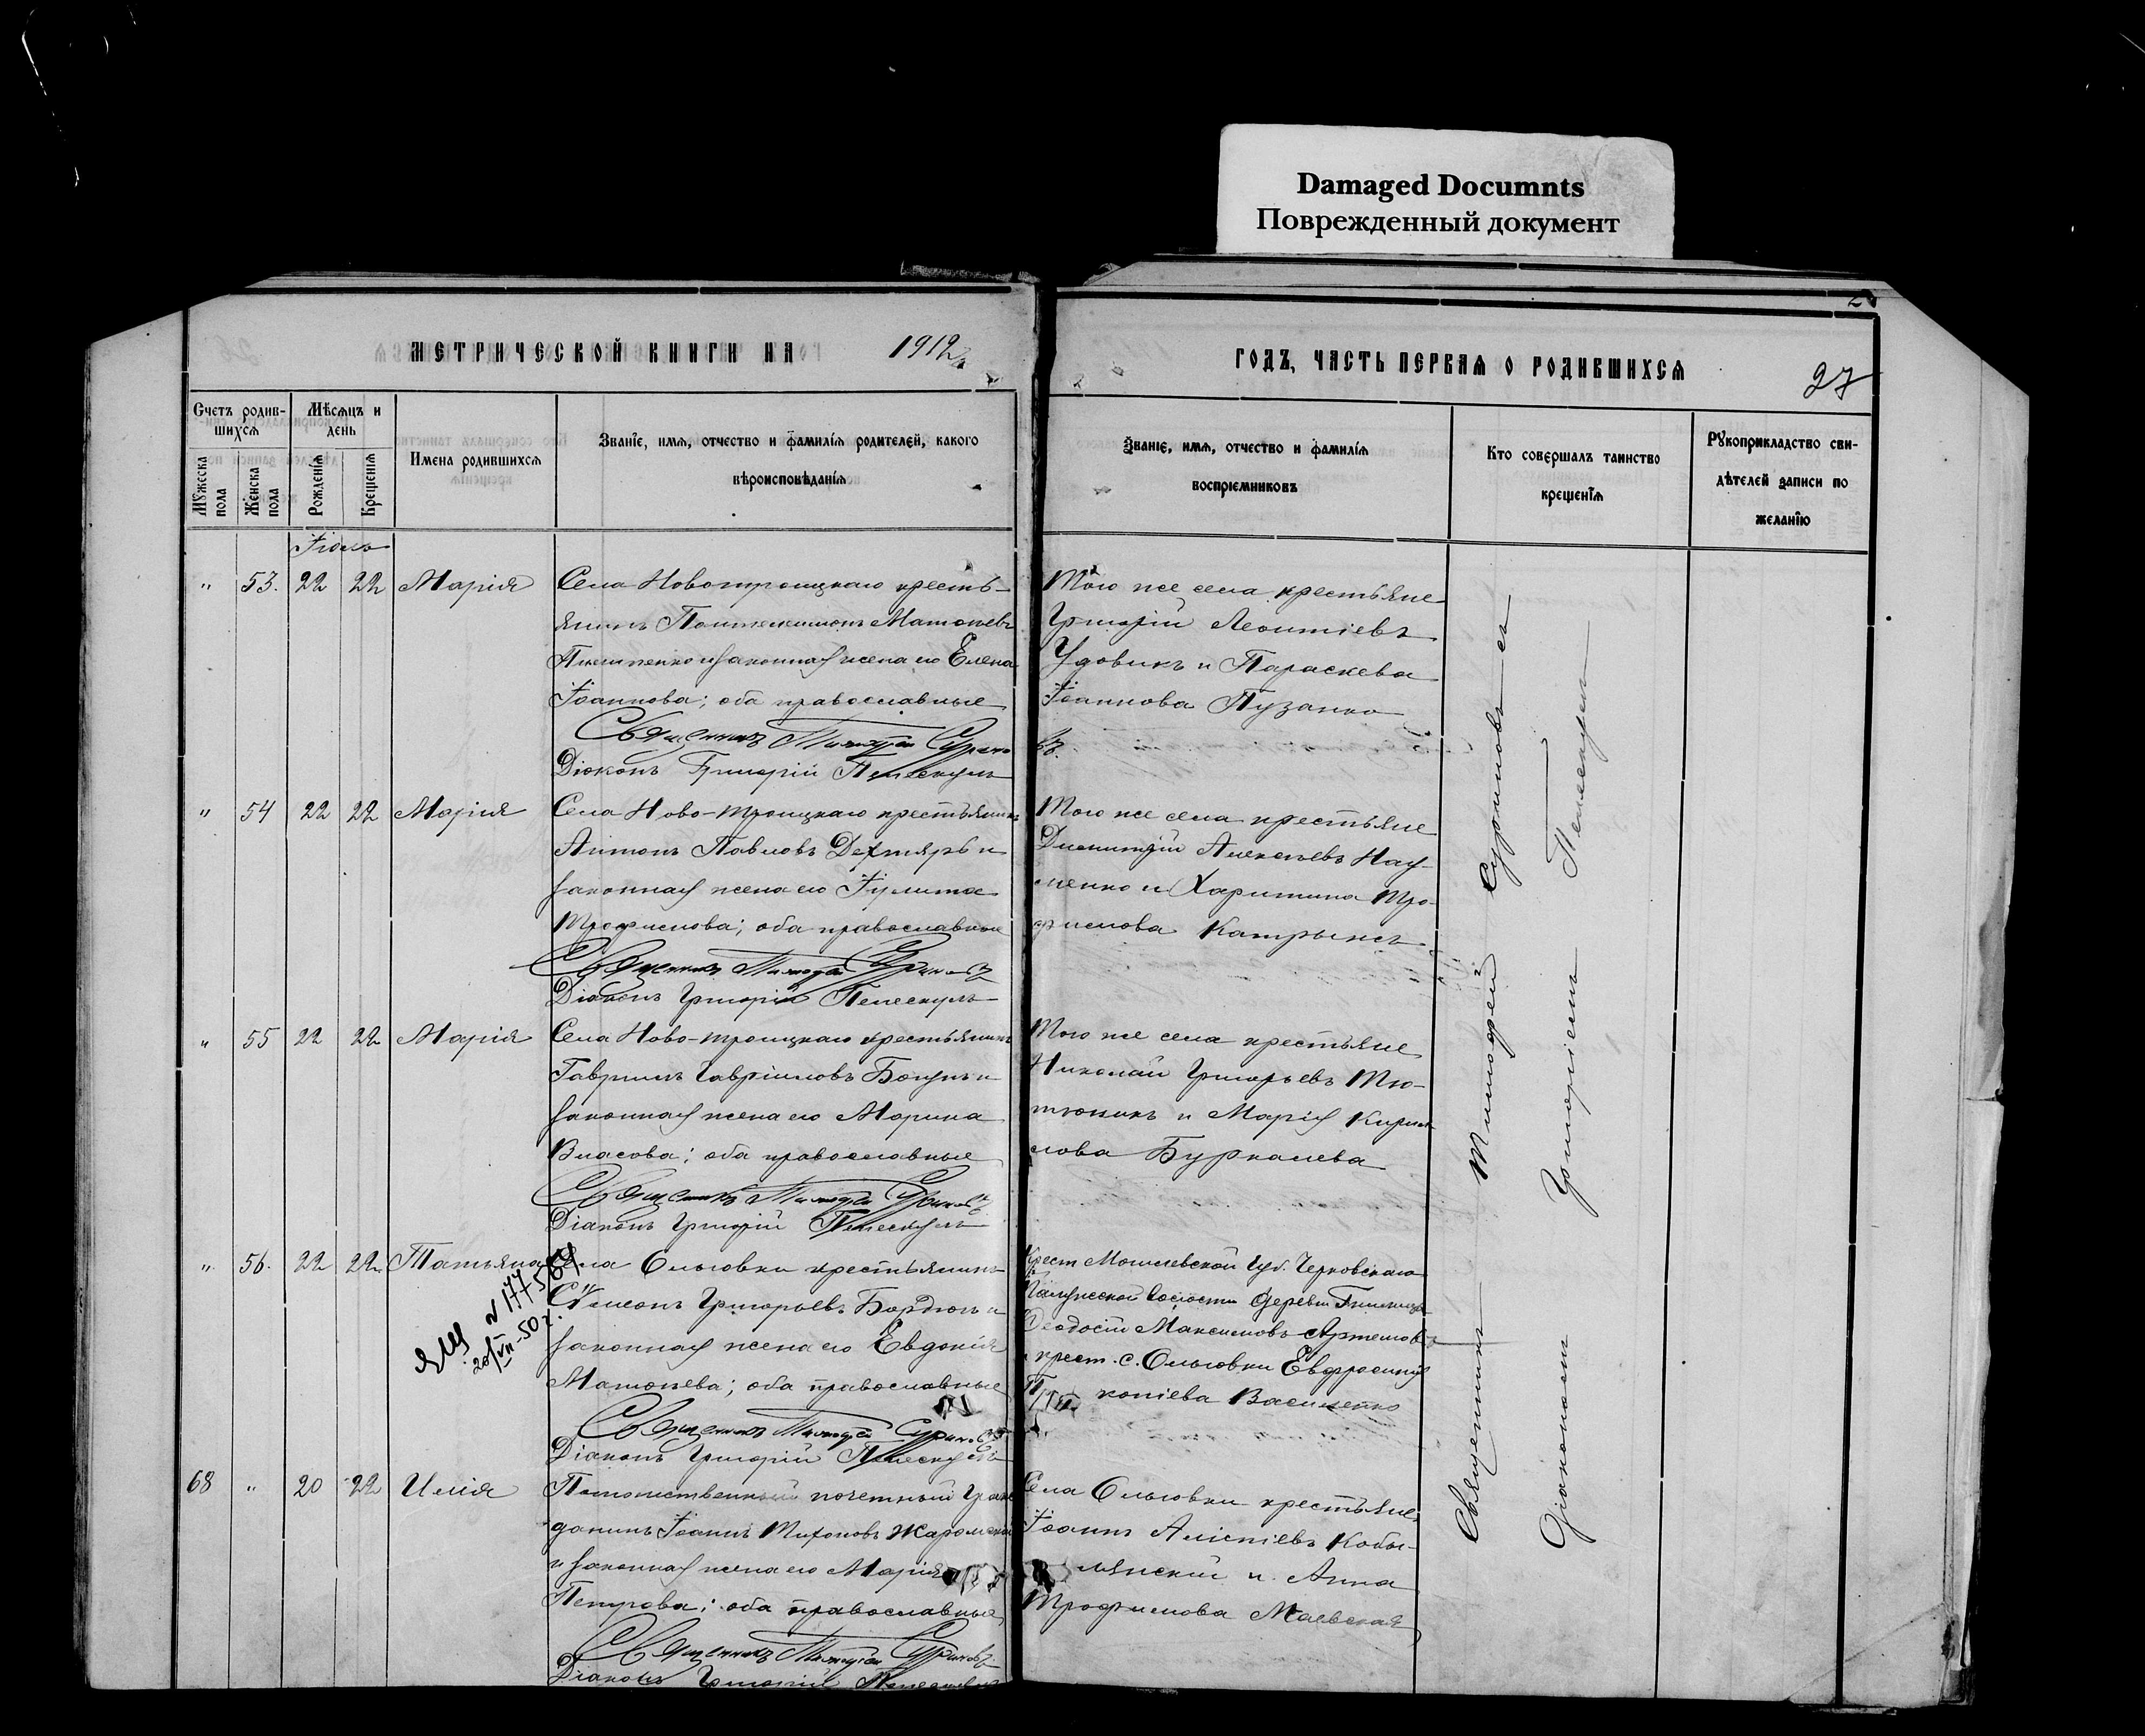 Damaged Documnts
Поврежденный документ
МЕТРИЧЕСКОЙ КНИГИ НА 1912
ГОДЪ, ЧАСТЬ ПЕРВАЯ О РОДИВШИХСЯ
27
Счетъ родив-
шихся
Мѣсяцъ и
день
Мужеска пола
Женска пола
Рожденія
Крещенія
Имена родившихся
Званіе, имя, отчество и фамилія родителей, какого
вѣроисповѣданія
Званіе, имя, отчество и фамилія
воспріемниковъ
Кто совершалъ таинство
крещенія
Рукоприкладство сви-
дѣтелей записи по
желанію
Іюль
" 53. 22 22 Марія
Села Новотроицкаго кресть-
янинъ Пантелеимонъ Матѳіевъ
и законная жена его Елена
Іоаннова; оба православные
Священникъ Тимоѳей Суриновъ
Діаконъ Григорій Пелескулъ
Того же села крестьяне
Григорій Леонтіевъ
Удовикъ и Параскева
Іоаннова Пузанко
" 54 22 22 Марія
Села Ново-Троицкаго крестьянинъ
Антонъ Павловъ Дехтярь и
законная жена его Іулитта
Трофимова; оба православные
Священникъ Тимоѳей Суриновъ
Діаконъ Григорій Пелескулъ
Того же села крестьяне
Димитрій Алексѣевъ Нау-
менко и Харитина Тро-
фимова
" 55 22 22 Марія
Села Ново-Троицкаго крестьянинъ
Гавріилъ Гавріиловъ и
законная жена его Марина
Власова; оба православные
Священникъ Тимоѳей Суриновъ
Діаконъ Григорій Пелескулъ
Того же села крестьяне
Николай Григорьевъ Тю-
тюникъ и Марія Кирил-
лова Буркалева
" 56. 22 22 Татьяна
N 177564
20/VII-50 г.
Села Ольговки крестьянинъ
Симеонъ Григорьевъ Бордюгъ и
законная жена его Евдокія
оба православные
Священникъ Тимоѳей Суриновъ
Діаконъ Григорій Пелескулъ
Крест. Могилевской Губ. Чериковскаго
волости деревни
Ѳеодосій Максимовъ Артемовъ
и крест. с. Ольговки Евфросинія
Василенко
68 " 20 22 Илія
Потомственный почетный граж-
данинъ Іоаннъ Тихоновъ
и законная жена его Марія
Петрова; оба православные
Священникъ Тимоѳей Суриновъ
Діаконъ Григорій Пелескулъ
Села Ольговки крестьяне
Іоаннъ Алипіевъ Кобы-
лянскій и Анна
Трофимова Маевская
Священникъ Тимоѳей Суриновъ съ
Діакономъ Григоріемъ